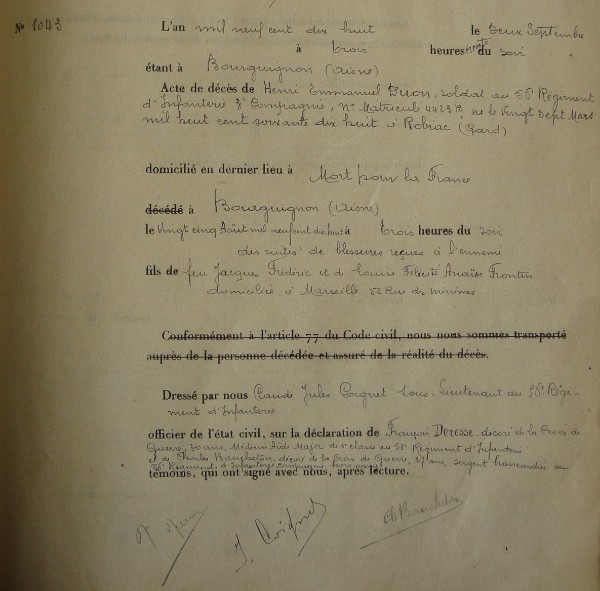 N° 1043
L'an mil neuf cent dix huit le deux Septembre
à trois heures trente du soir
étant à Bourguignon (Aisne)
Acte de décès de Henri Emmanuel soldat au 56e Régiment
d'Infanterie 3e Compagnie, n° Matricule né le Vingt Sept Mars
mil huit cent soixante dix huit à Robiac (Gard)
domicilié en dernier lieu à Mort pour la France
décédé à Bourguignon (Aisne)
le Vingt cinq Août mil neuf cent dix huit à trois heures du soir
des suites de blessures reçues à l'ennemi
fils de feu Jacques Frédéric et de Louise Félicité Anaïse Frontin
domiciliée à Marseille, 52 Rue des Minimes
Conformément à l'article 77 du Code civil, nous nous sommes transporté
auprès de la personne décédée et assuré de la réalité du décès.
Dressé par nous Jules Coignet Sous-Lieutenant au 56e Régi-
ment d'Infanterie
officier de l'état civil, sur la déclaration de François Deresse, décoré de la Croix de
Guerre, 30 ans, Médecin Aide Major de 1e classe au 56e Régiment d'Infanterie
et de Charles décoré de la Croix de Guerre, 27 ans, sergent brancardier au
56e Régiment d'Infanterie
témoins, qui ont signé avec nous, après lecture.
J. Coignet